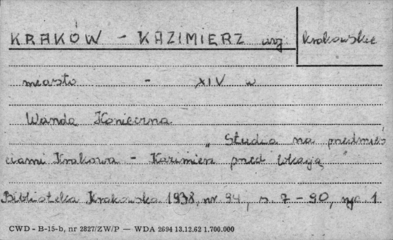 KRAKÓW - KAZIMIERZ woj krakowskie
miasto - XIV w
Wanda Konieczna
"Studia na przedmieś-
ciami Krakowa - Kazimierz przed lokacją"
Biblioteka Krakowska 1938, nr 94, s. 7-90, ryc. 1
CWD - B-15-b, nr 2827/ZW/P — WDA 2694 13.12.62 1.700.000